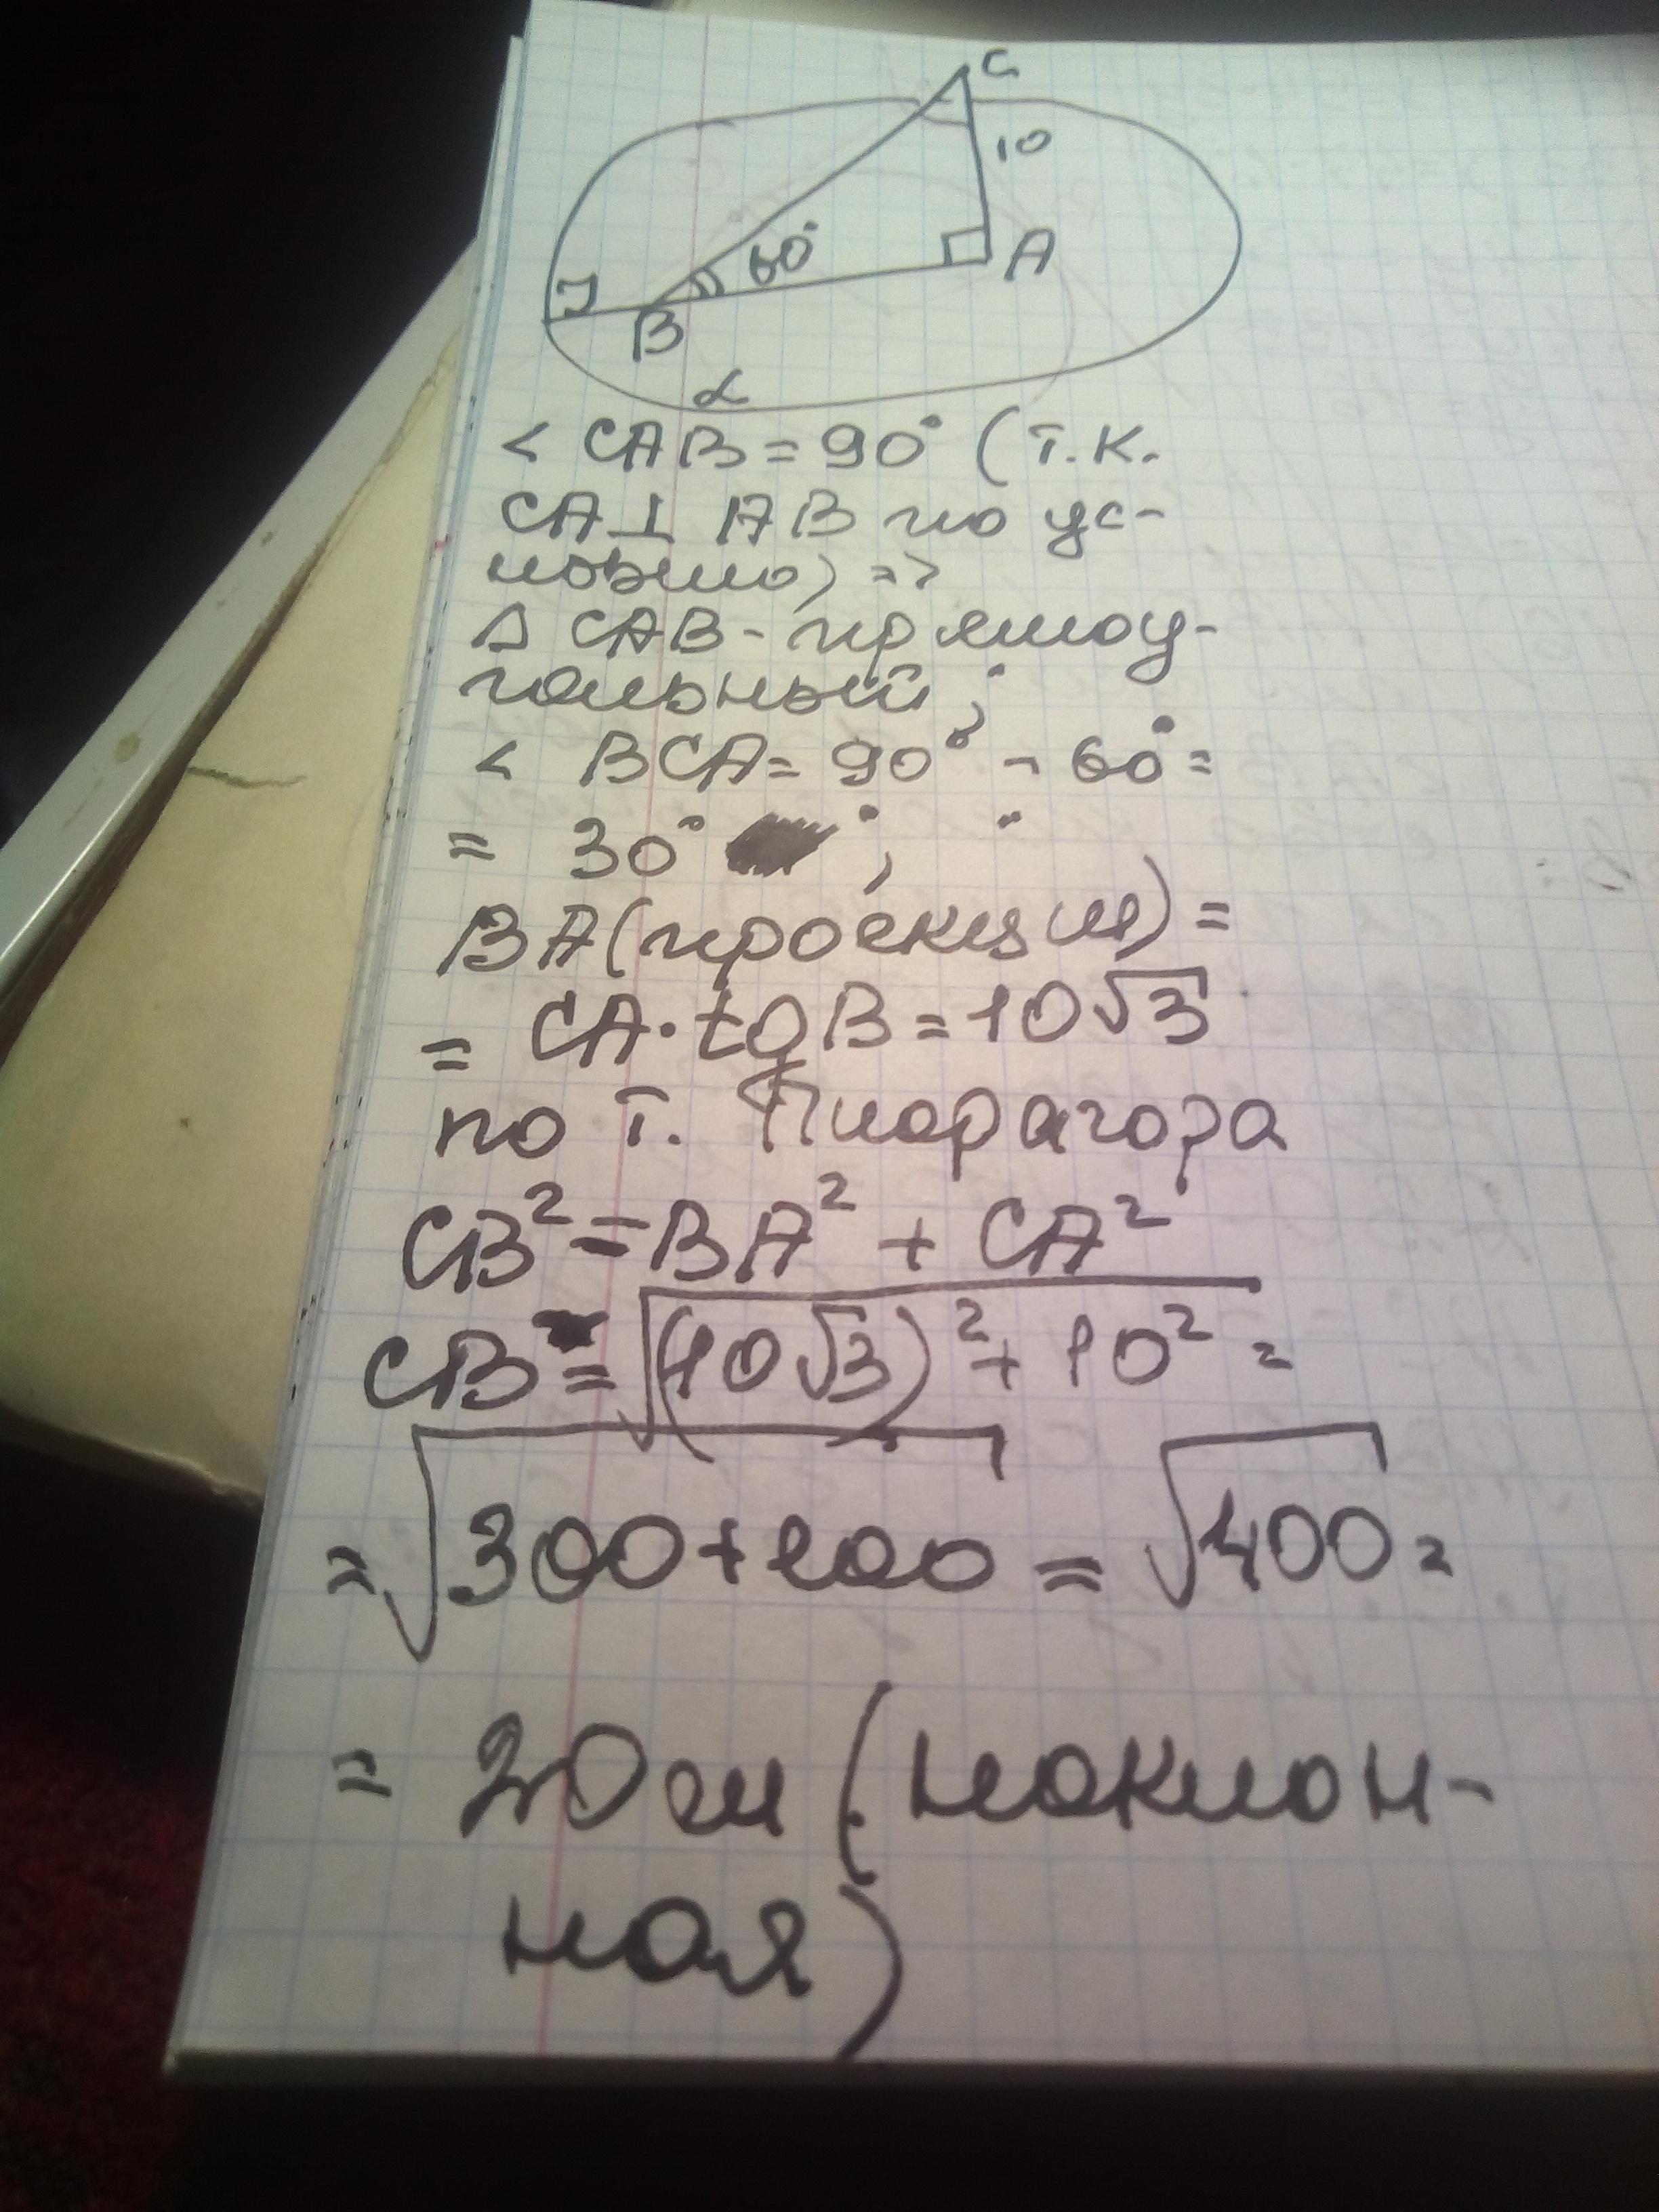 C
10
60°
A
J
B
α
< CAB = 90° (т.к.
CA⊥ AB по ус-
ловию) =>
Δ CAB - прямоу-
гольный ;
< BCA = 90° - 60° =
= 30° ;
BA (проекция) =
= CA · tg B = 10√3
по т. Пифагора
CB² = BA² + CA²
CB = √(10√3)² + 10² =
= √300+100 = √400 =
= 20 см (наклон-
ная)